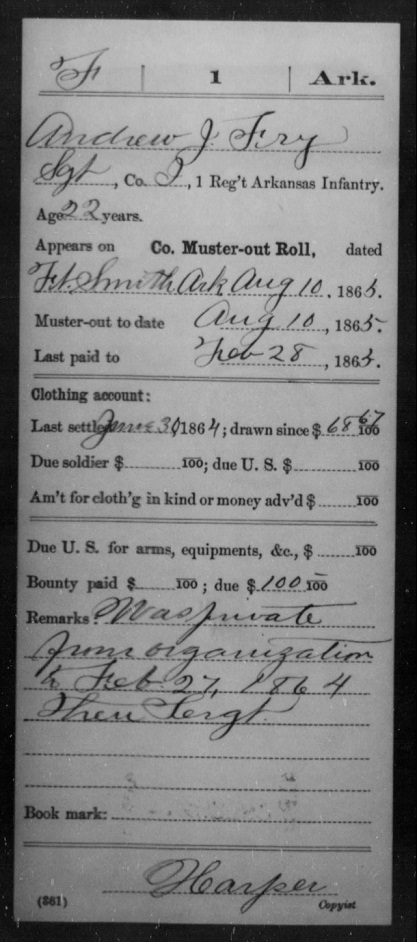 F | 1 | Ark.
Andrew J. Fry
Sgt, Co. I, 1 Reg't Arkansas Infantry.
Age 22 years.
Appears on Co. Muster-out Roll, dated
Ft. Smith Ark Aug 10, 1865.
Muster-out to date Aug 10, 1865.
Last paid to Feb 28, 1865.
Clothing account:
Last settled June 30, 1864; drawn since $ 68 67/100
Due soldier $ 100; due U. S. $ 100
Am't for cloth'g in kind or money adv'd $ 100
Due U. S. for arms, equipments, &c., $ 100
Bounty paid $ 100; due $ 100 100
Remarks: Was private
from organization
to Feb 27, 1864
Then Sergt.
Book mark:
Harper
(861) Copyist.